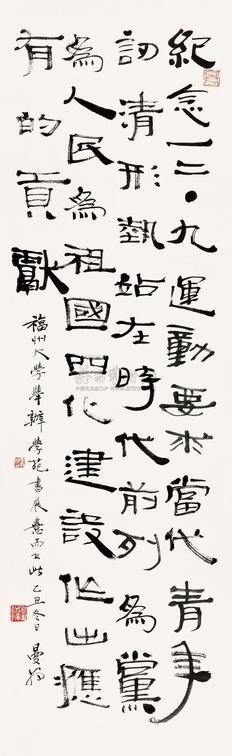 紀念一二·九運動要求當代青年
認清形勢站在時代前列為黨
為人民為祖國四化建設作出應
有的貢獻
福州大學舉辦學苑書展書而為此乙丑冬日曼翁